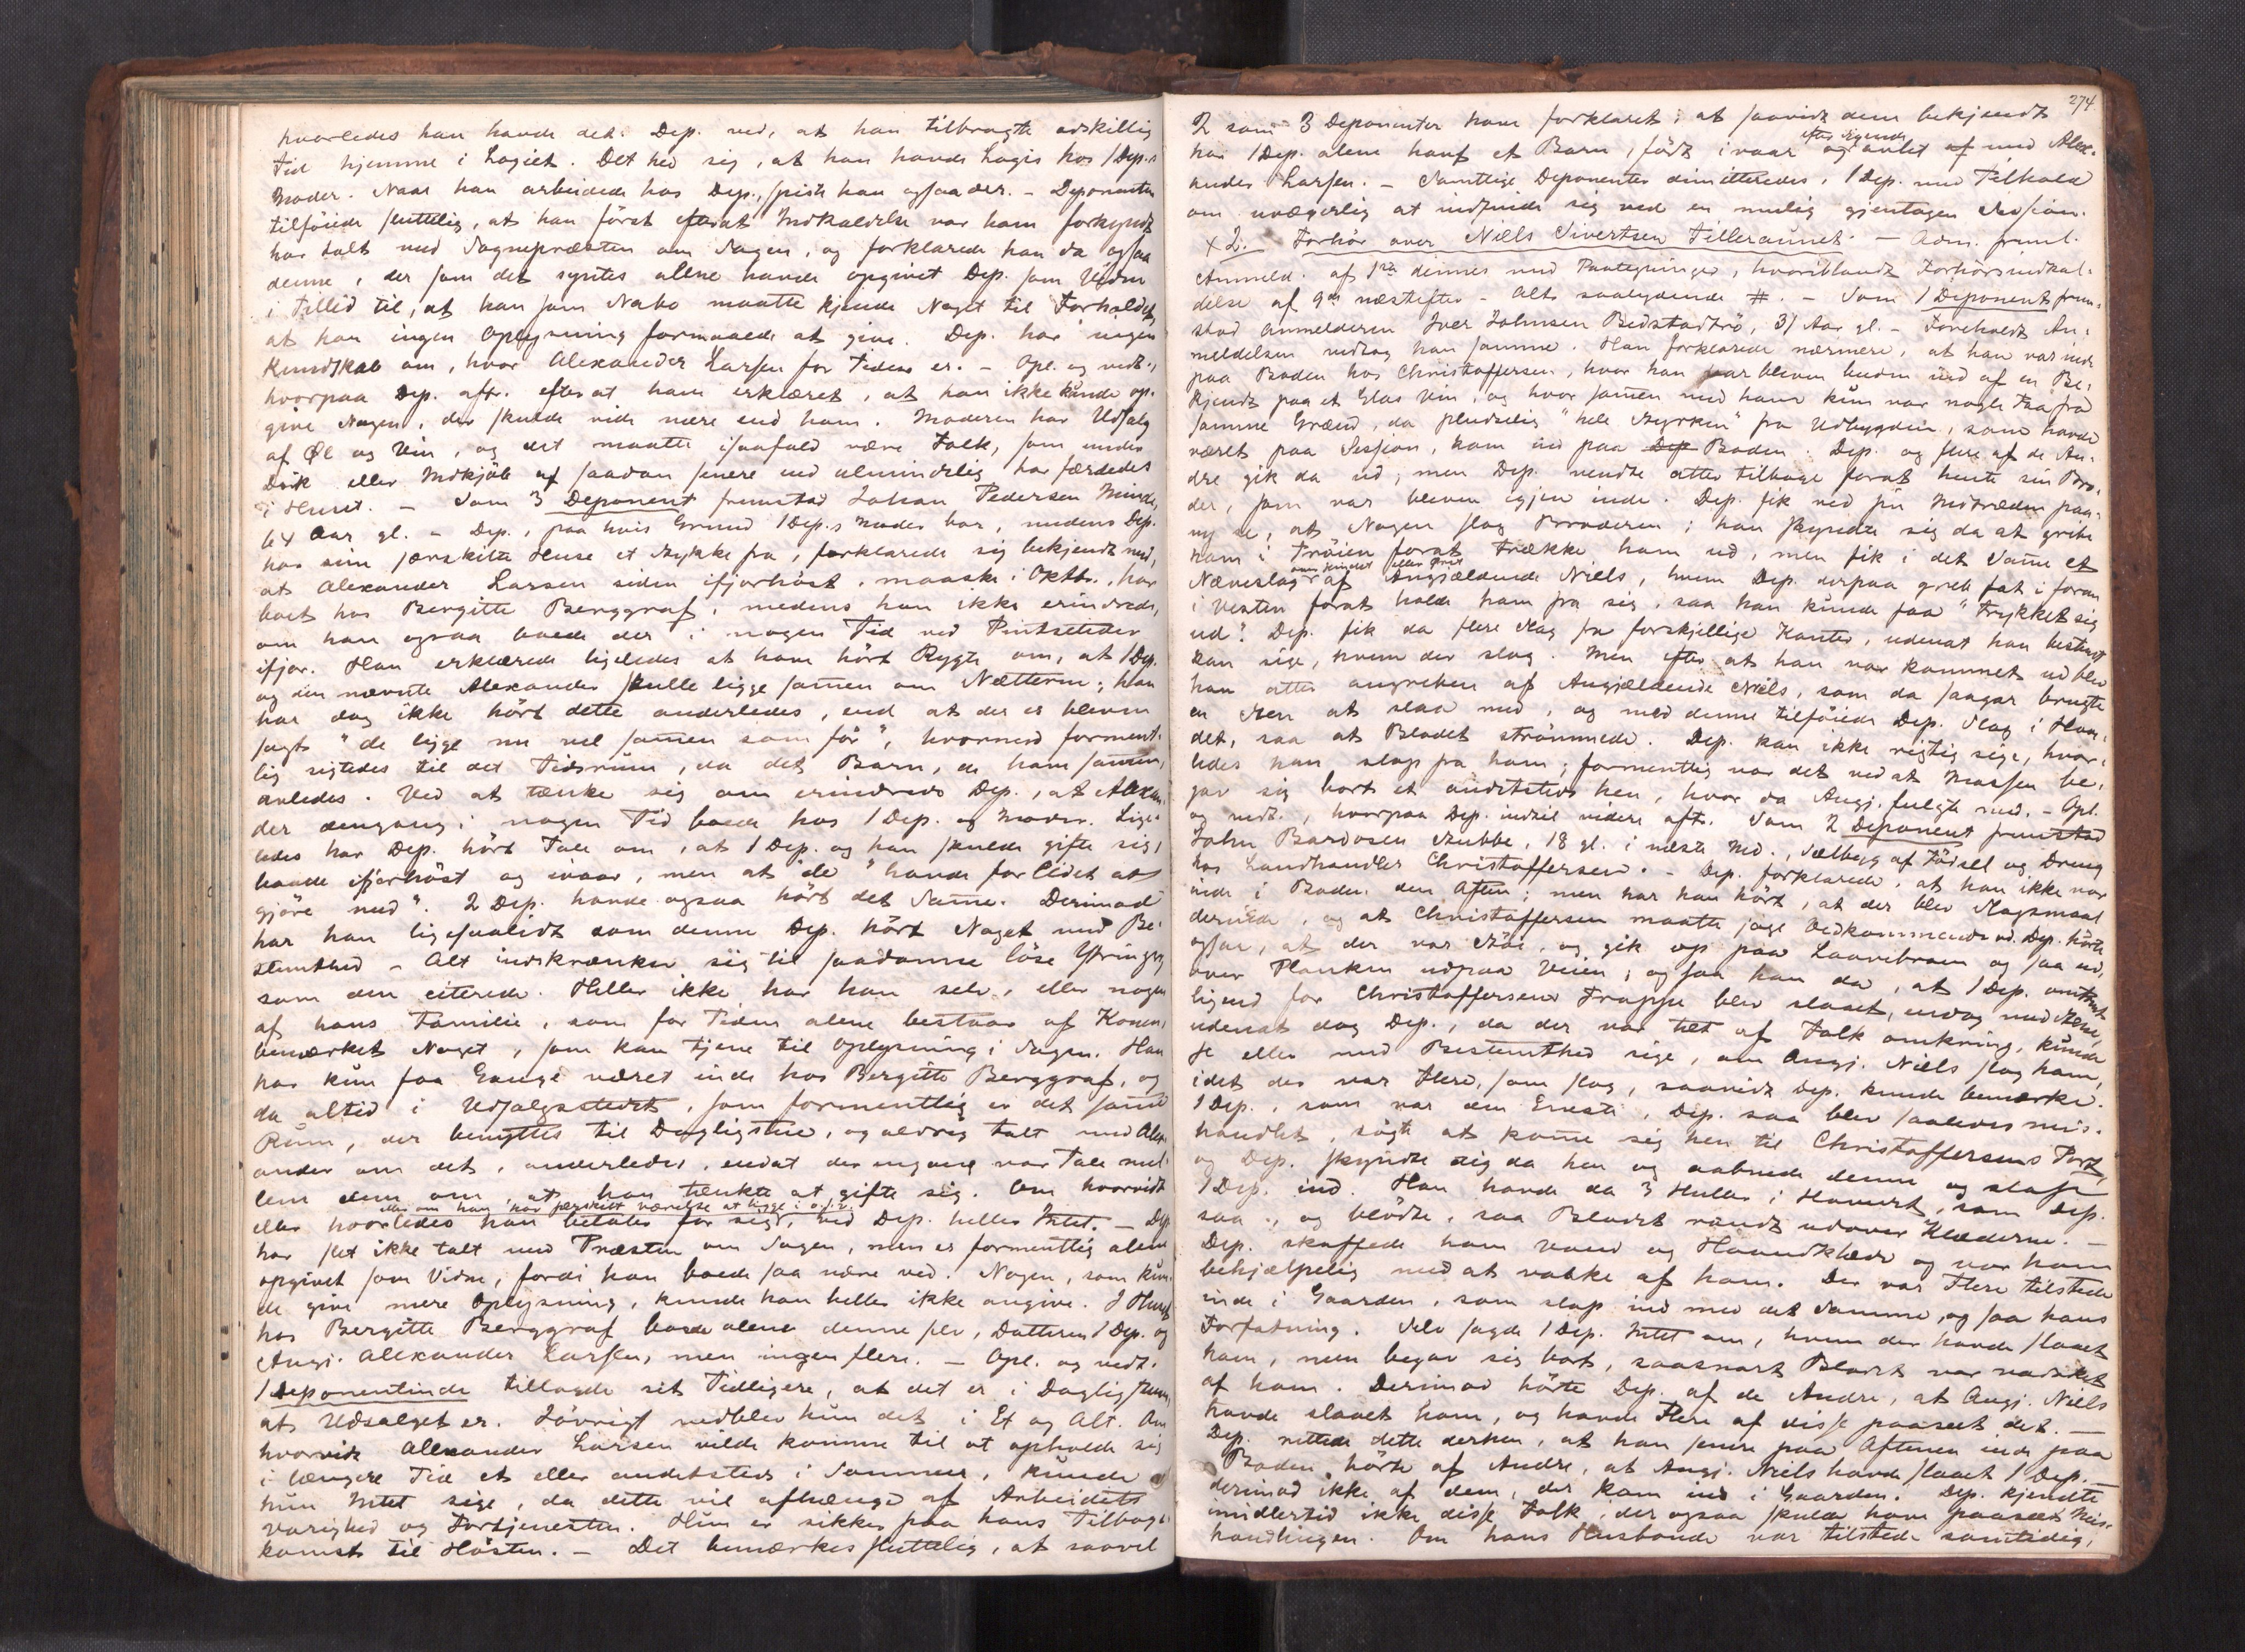 hvorledes han havde det. Dep. ved, at han tilbragte adskillig
Tid hjemme i Logiet. Det hed sig, at han havde Logis hos 1 Dep.s
Moder. Naar han arbeidede hos Dep., spiste han ogsaa der. – Deponenten
tilføiede sluttelig, at han først efterat Indkaldelse var ham forkyndt
har talt med Sognepræsten om Sagen, og forklarede han da ogsaa
denne, der som det syntes alene havde opgivet Dep. som Vidne
i Tillid til, at han som Nabo maatte kjende Noget til Forholdet,
at han ingen Oplysning formaaede at give. Dep. har ingen
Kundskab om, hvor Alexander Larsen for Tiden er. – Opl. og vedt.,
hvorpaa Dep. aftr. efterat have erklæret, at han ikke kunde op-
give Nogen, der skulde vide mere end ham. Moderen har Udsalg
af Øl og Vin, og det maatte isaafald være Folk, som under
Drik eller Indkjøb af saadan senere end almindelig har færdedes
i Huset. – Som 3 Deponent fremstod Johan Pedersen
64 Aar gl. – Dep., paa hvis Grund 1 Dep.s Moder bor, medens Dep.
har sine særskilte Huse et Stykke fra, forklarede sig bekjendt med,
at Alexander Larsen siden ifjorhøst, maaske i Oktbr., har
boet hos Bergitte Berggraf, medens han ikke erindrede,
om han ogsaa boede der i nogen Tid ved Pintsetider
ifjor. Han erklærede ligeledes at have hørt Rygte om, at 1 Dep.
og den nævnte Alexander skulle ligge sammen om Nætterne; han
har dog ikke hørt dette anderledes, end at der er bleven
sagt "de ligge nu vel sammen som før", hvormed forment-
lig sigtedes til det Tidsrum, da det Barn, de have sammen,
avledes. Ved at tænke sig om erindrede Dep., at Alexan-
der dengang i nogen Tid boede hos 1 Dep. og Moder. Lige-
ledes har Dep. hørt Tale om, at 1 Dep. og han skulde gifte sig,
baade ifjorhøst og ivaar, men at de "havde for lidet at
gjøre med". 2 Dep. havde ogsaa hørt det Samme. Derimod
har han ligesaalidt som denne Dep. hørt Noget med Be-
stemthed – Alt indskrænker sig til saadanne løse Ytringer
som den citerede. Heller ikke har han selv, eller nogen
af hans Familie, som for Tiden alene bestaar af Konen,
bemærket Noget, som kan tjene til Oplysning i Sagen. Han
har kun faa Gange været inde hos Bergitte Berggraf, og
da altid i Udsalgsstedet, som formentlig er det samme
Rum, der benyttes til Dagligstue, og aldrig talt med Alex-
ander om det, anderledes, endat der engang var Tale mel-
lem dem om, at han tænkte at gifte sig. Om hvorvidt
eller om han har særskilt værelse at ligge i o.s.v.
eller hvorledes han betaler for sig, ved Dep. heller Intet. – Dep.
har slet ikke talt med Præsten om Sagen, men er formentlig alene
opgivet som Vidne, fordi han boede saa nære ved. Nogen, som kun-
de give mere Oplysning, kunde han heller ikke angive. I Huset
hos Bergitte Berggraf boede alene denne selv, Datteren 1 Dep. og
Angj. Alexander Larsen, men ingen flere. – Opl. og vedt.
1 Deponentinde tillagde sit Tidligere, at det er i Dagligstuen,
at Udsalget er. Iøvrigt vedblev hun det i Et og Alt. Om
hvorvidt Alexander Larsen vilde komme til at opholde sig
i længere Tid et eller andetsteds i Sommer, kunde
hun Intet sige, da dette vil afhænge af Arbeidets
Varighed og Fortjenesten. Hun er sikker paa hans Tilbage-
komst til Høsten. – Det bemærkes sluttelig, at saavel
274
2 som 3 Deponenter have forklaret, at saavidt dem bekjendt
efter Sigende
har 1 Dep. alene havt et Barn, født ivaar og avlet af med Alex-
ander Larsen. – Samtlige Deponenter dimitteredes, 1 Dep. med Tilhold
om uvægerlig at indfinde sig ved en mulig gjentagen Session.
x 2. Forhør over Niels Sivertsen Telleraunet. – Adm. freml.
Anmeld. af 1ste dennes med Paategninger, hvoriblandt Forhørsindkal-
delse af 9de næstefter – Alt saalydende #. – Som 1 Deponent frem-
stod Anmelderen Iver Johnsen Bedstadtrø, 31 Aar gl. – Foreholdt An-
meldelsen vedtog han samme. Han forklarede nærmere, at han var inde
paa Boden hos Christoffersen, hvor han var bleven buden ind af en Be-
kjendt paa et Glas Vin, og hvor sammen med ham kun var nogle Faa fra
samme Grænd, da pludselig "hele Styrken" fra Udbygden, som havde
været paa Session, kom ind paa Dep Boden. Dep. og flere af de An-
dre gik da ud, men Dep. vendte atter tilbage forat hente sin Bro-
der, som var bleven igjen inde. Dep. fik ved sin Indtræden paa-
ny se, at Nogen slog Broderen; han skyndte sig da at gribe
ham i Trøien forat trække ham ud, men fik i det Samme et
over Kindet eller Øret
Næveslag af Angjældende Niels, hvem Dep. derpaa greb fat i foran
i Vesten forat holde ham fra sig, saa han kunde faa "trykket sig
ud". Dep. fik da flere Slag fra forskjellige Kanter, udenat han bestemt
kan sige, hvem der slog. Men efter at han var kommet ud blev
han atter angreben af Angjældende Niels, som da saagar brugte
en Sten at slaa med, og med denne tilføiede Dep. Slag i Hov-
det, saa at Blodet strømmede. Dep. kan ikke rigtig sige, hvor-
ledes han slap fra ham; formentlig var det ved at Massen be-
gav sig bort et andetsteds hen, hvor da Angj. fulgte med. – Opl.
og vedt., hvorpaa Dep. indtil videre aftr. Som 2 Deponent fremstod
John Bardosen Stubbe, 18 gl. i næste Md., Sælbygg af Fødsel og Dreng
hos Landhandler Christoffersen. – Dep. forklarede, at han ikke var
inde i Boden den Aften; men har han hørt, at der blev Slagsmaal
derinde, og at Christoffersen maatte jage Vedkommende ud. Dep. hørte
ogsaa, at der var Støi, og gik op paa Laavebroen og saa ud
over Planken udpaa Veien, og saa han da, at 1 Dep. omtrent
ligend for Christoffersens Trappe blev slaaet, endog med Stene,
udenat dog Dep., da der var tæt af Folk omkring, kunde
se eller med Bestemthed sige, om Angj. Niels slog ham,
idet der var Flere, som slog, saavidt Dep. kunde bemærke.
1 Dep., som var den Eneste, Dep. saa blev saaledes mis-
handlet, søgte at komme sig hen til Christoffersens Port,
og Dep. skyndte sig da hen og aabnede denne og slap
1 Dep. ind. Han havde da 3 Huller i Hovedet, som Dep.
saa, og blødte, saa Blodet randt udover Klæderne. –
Dep. skaffede ham Vand og Haandklæde og var ham
behjælpelig med at vaske af ham. Der var Flere tilstede
inde i Gaarden, som slap ind med det Samme, og saa hans
Forfatning. Selv sagde 1 Dep. Intet om, hvem der havde slaaet
ham, men begav sig bort, saasnart Blodet var vasket
af ham. Derimod hørte Dep. af de Andre, at Angj. Niels
havde slaaet ham, og havde Flere af disse paaseet det. –
Dep. rettede dette derhen, at han senere paa Aftenen inde paa
Boden hørte af Andre, at Angj. Niels havde slaaet 1 Dep. –
derimod ikke af dem, der kom ind i Gaarden. Dep. kjendte
imidlertid ikke disse Folk, der ogsaa skulde have paaseet Mis-
handlingen. Om hans Husbonde var tilstede samtidig,